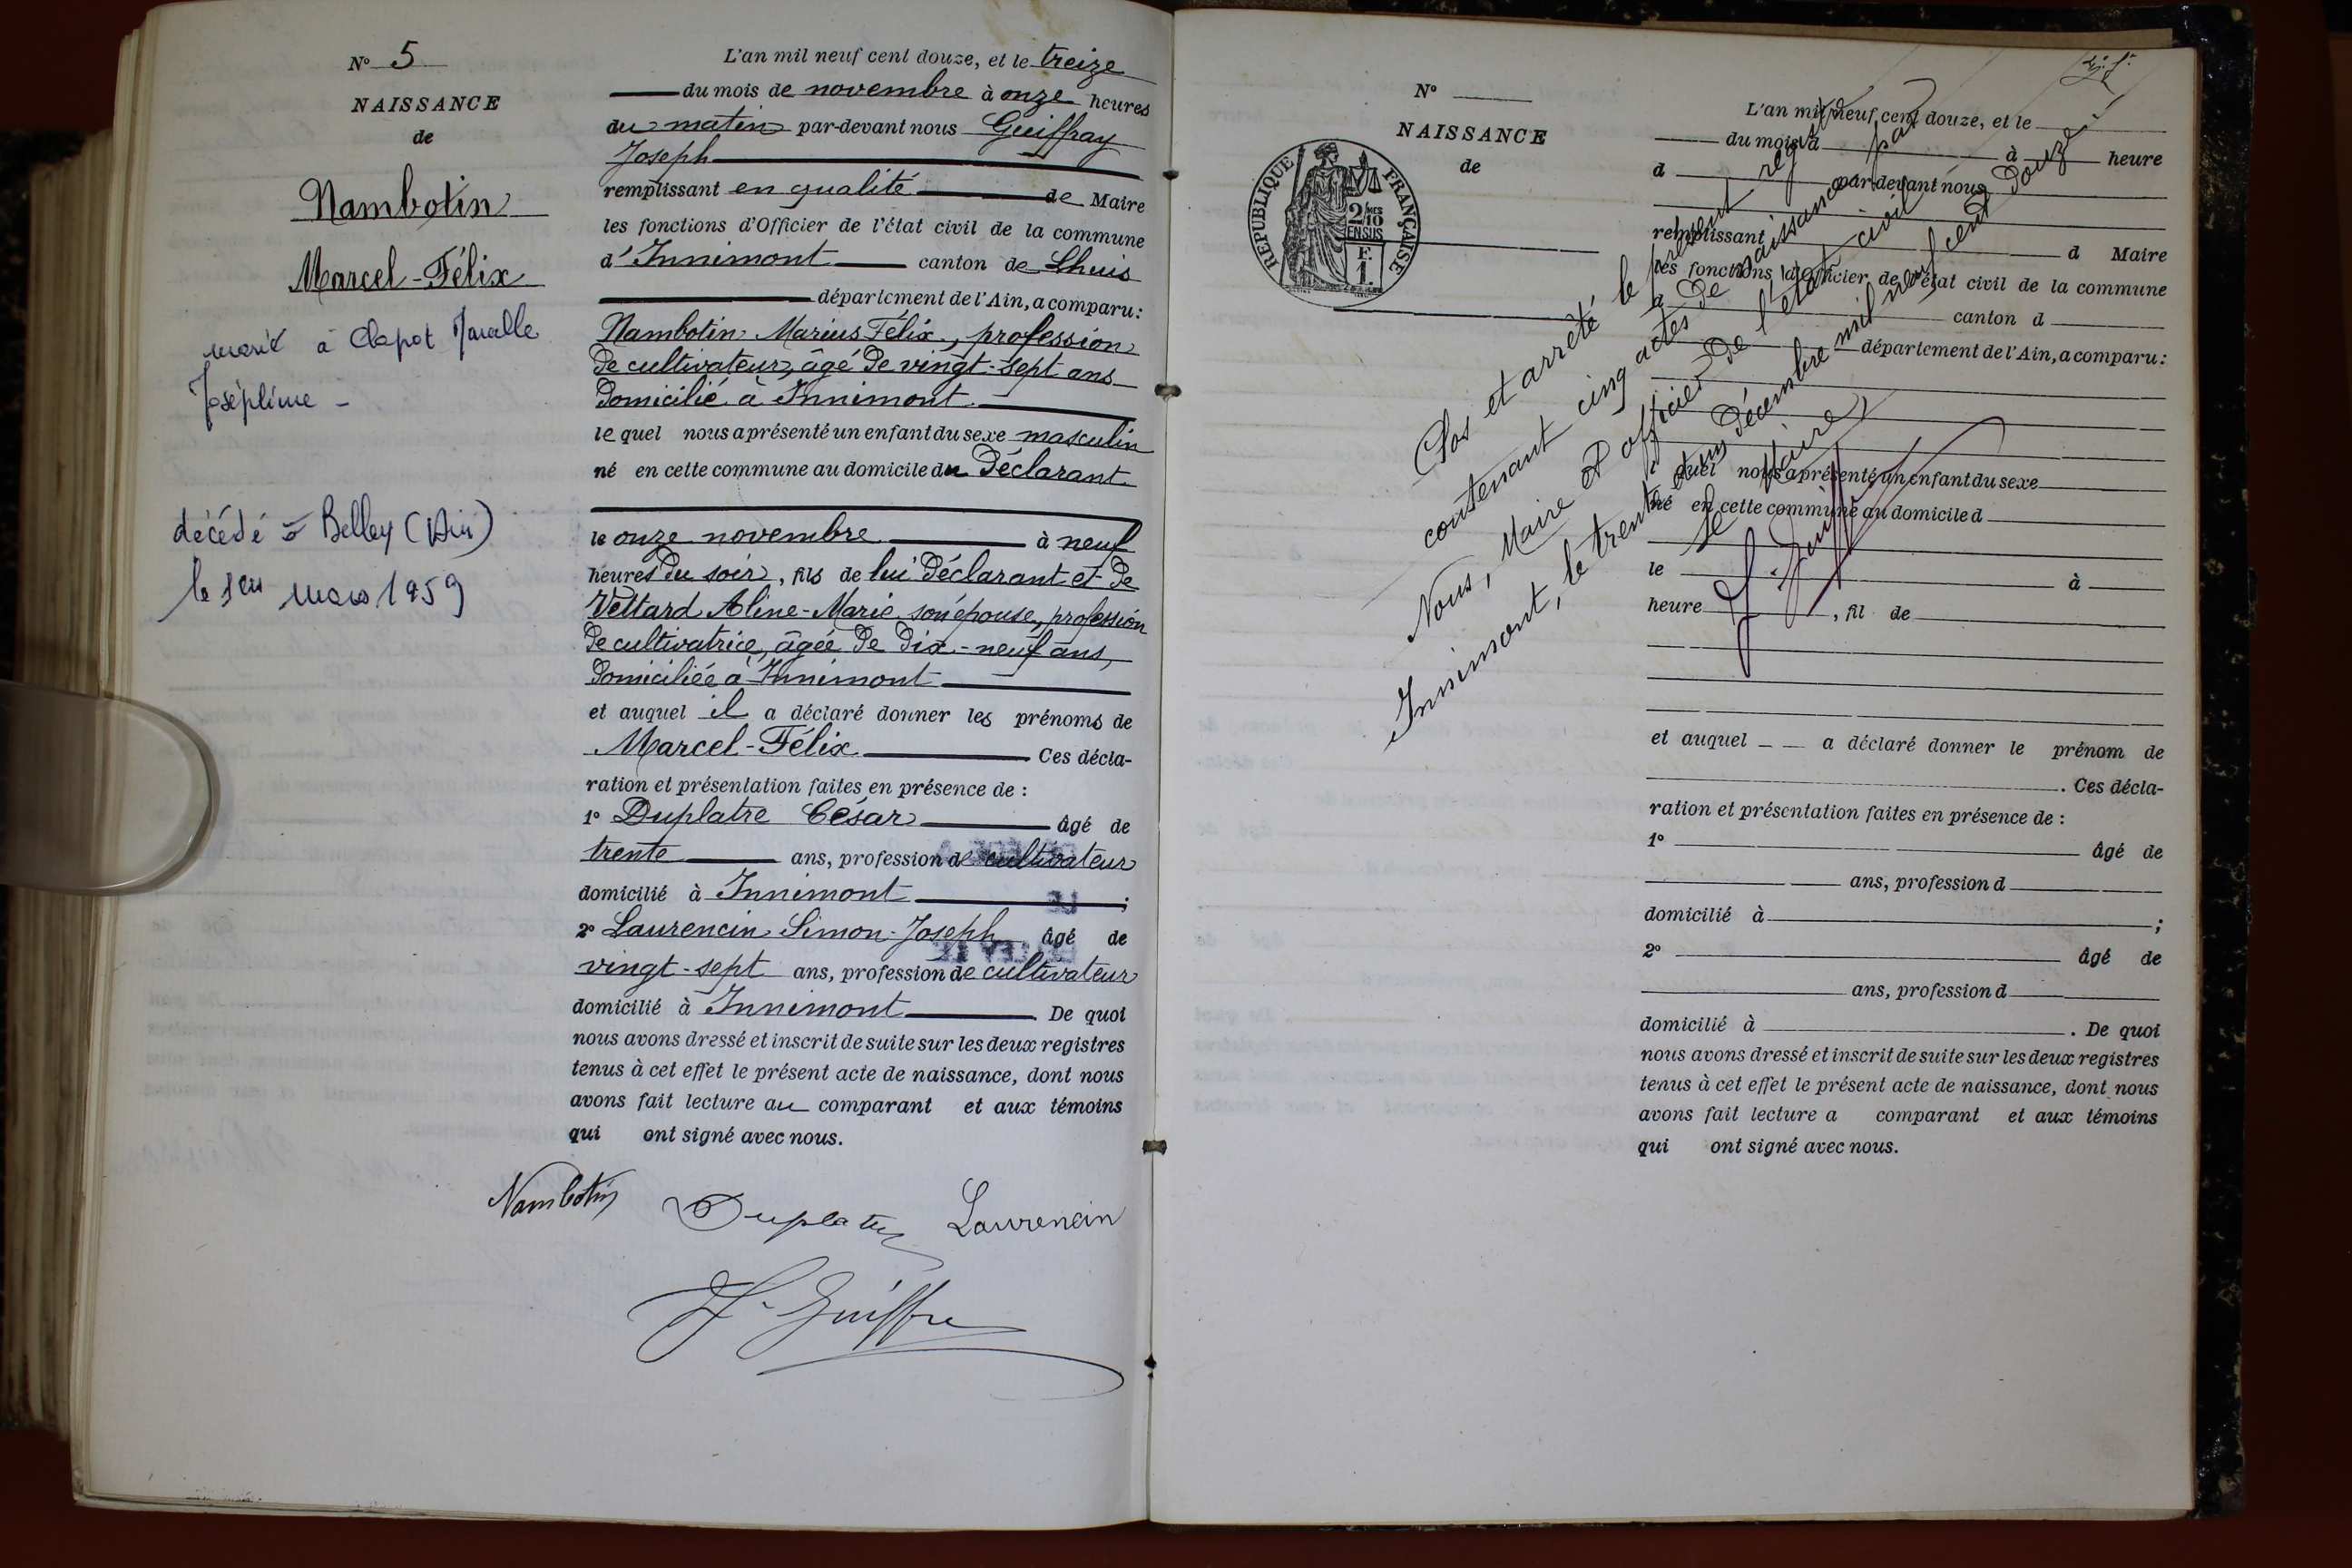 N° 5
NAISSANCE
de
Nambotin
Marcel-Félix
marié à Clapot
Joséphine -
décédé à Belley (Ain)
le 1er mars 1959
L'an mil neuf cent douze, et le treize
du mois de novembre à onze heures
du matin par-devant nous Guiffray
Joseph
remplissant en qualité de Maire
les fonctions d'Officier de l'état civil de la commune
d'Innimont canton de Lhuis
département de l'Ain, a comparu:
Nambotin Marius Félix, profession
de cultivateur, âgé de vingt-sept ans
domicilié à Innimont.
le quel nous a présenté un enfant du sexe masculin
né en cette commune au domicile du Déclarant
le onze novembre à neuf
heures du soir, fils de lui Déclarant et de
Vettard Aline-Marie son épouse, profession
de cultivatrice, âgée de dix-neuf ans,
domiciliée à Innimont
et auquel il a déclaré donner les prénoms de
Marcel-Félix Ces décla-
ration et présentation faites en présence de :
1° Duplatre César âgé de
trente ans, profession de cultivateur
domicilié à Innimont ;
2° Laurencin Simon-Joseph âgé de
vingt-sept ans, profession de cultivateur
domicilié à Innimont De quoi
nous avons dressé et inscrit de suite sur les deux registres
tenus à cet effet le présent acte de naissance, dont nous
avons fait lecture au comparant et aux témoins
qui ont signé avec nous.
Nambotin Duplatre Laurencin
N°
NAISSANCE
de
RÉPUBLIQUE FRANÇAISE
2/10
EN SUS
F.
1.
L'an mil neuf cent douze, et le
du mois d à heure
d par-devant nous
remplissant d Maire
les fonctions d'Officier de l'état civil de la commune
d canton d
département de l'Ain, a comparu:
quel nous a présenté un enfant du sexe
né en cette commune au domicile d
le à
heure , fil de
et auquel a déclaré donner le prénom de
. Ces décla-
ration et présentation faites en présence de :
1° âgé de
ans, profession d
domicilié à ;
2° âgé de
ans, profession d
domicilié à . De quoi
nous avons dressé et inscrit de suite sur les deux registres
tenus à cet effet le présent acte de naissance, dont nous
avons fait lecture a comparant et aux témoins
qui ont signé avec nous.
Clos et arrêté le présent registre
contenant cinq actes de naissance par
Nous, Maire et officier de l'état civil
Innimont, le trente et un décembre mil neuf cent douze.
Le Maire,